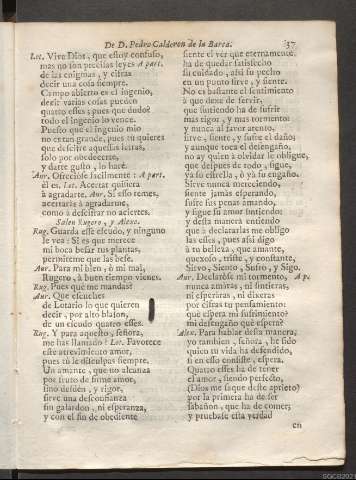 De D. Pedro Calderon de la Barca. 37
Lot. Vive Dios, que estoy confuso,
mas no son precisas leyes A part.
de las enigmas, y cifras
decir una cosa siempre.
Campo abierto es el ingenio,
decir varias cosas pueden
quatro esses; pues que dudo?
todo el ingenio lo vence.
Puesto que el ingenio mio
no es tan grande, pues tu quieres
que descifre aquestas letras,
solo por obedecerte,
y darte gusto, lo haré.
Aur. Ofrecióse facilmente: A part.
él es. Lot. Acertar quisiera
à agradarte. Aur. Si esso temes,
acertarás à agradarme,
como à descifrar no aciertes.
Salen Rugero, y Alexo.
Rug. Guarda este escudo, y ninguno
le vea: Si es que merece
mi boca besar tus plantas,
permiteme que las bese.
Aur. Para mi bien, ò mi mal,
Rugero, à buen tiempo vienes.
Rug. Pues qué me mandas?
Aur. Que escuches
de Lotario lo que quieren
decir, por alto blason,
de un escudo quatro esses.
Rug. Y para aquesto, señora,
me has llamado? Lot. Favorece
este atrevimiento amor,
pues tú le disculpas siempre.
Un amante, que no alcanza
por fruto de firme amor,
sino desdén, y rigor,
sirve una desconfianza
sin galardon, ni esperanza,
y con el fin de obediente
siente el vèr que eternamente
ha de quedar satisfecho
su cuidado, assi su pecho
en un punto sirve, y siente.
No es bastante el sentimiento
à que dexe de servir,
que sirviendo ha de sufrir
mas rigor, y mas tormento:
y nunca al favor atento,
sirve, siente, y sufre el daño;
y aunque toca el desengaño,
no ay quien à olvidar le obligue,
que despues de todo, sigue,
yà su estrella, ò yà su engaño.
Sirve nunca mereciendo,
siente jamás esperando,
sufre sus penas amando,
y sigue su amor sintiendo:
y desta manera entiendo
que à declararlas me obligo
las esses, pues assi digo
à tu belleza, que amante,
quexoso, triste, y constante,
Sirvo, Siento, Sufro, y Sigo.
Aur. Declaròse mi tormento, A p.
nunca amáras, ni sintieras,
ni esperáras, ni dixeras
por cifras tu pensamiento:
què espera mi sufrimiento?
mi desengaño què espera?
Alex. Para hablar desta manera,
yo tambien, señora, he sido
quien tu vida ha defendido,
si en esso consiste, espera.
Quatro esses ha de tener
el amor, siendo perfecto,
(Dios me saque deste aprieto)
por la primera ha de ser
sabañon, que ha de comer;
y pruebase esta verdad
en
SGCB2021